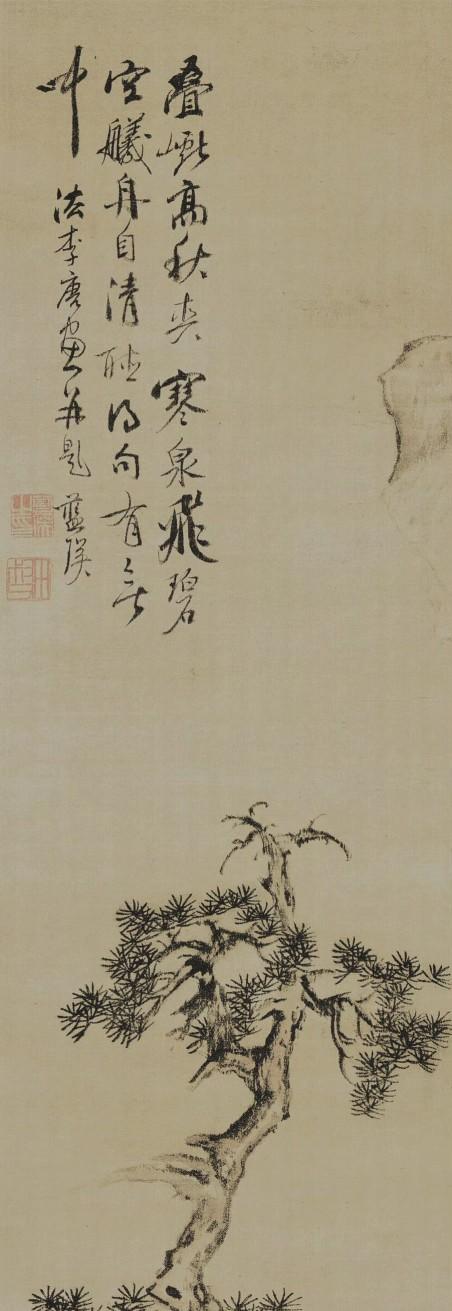 叠巘高秋爽寒泉飛碧
空艤舟自清聽得句有無
中法李唐畫并題藍瑛